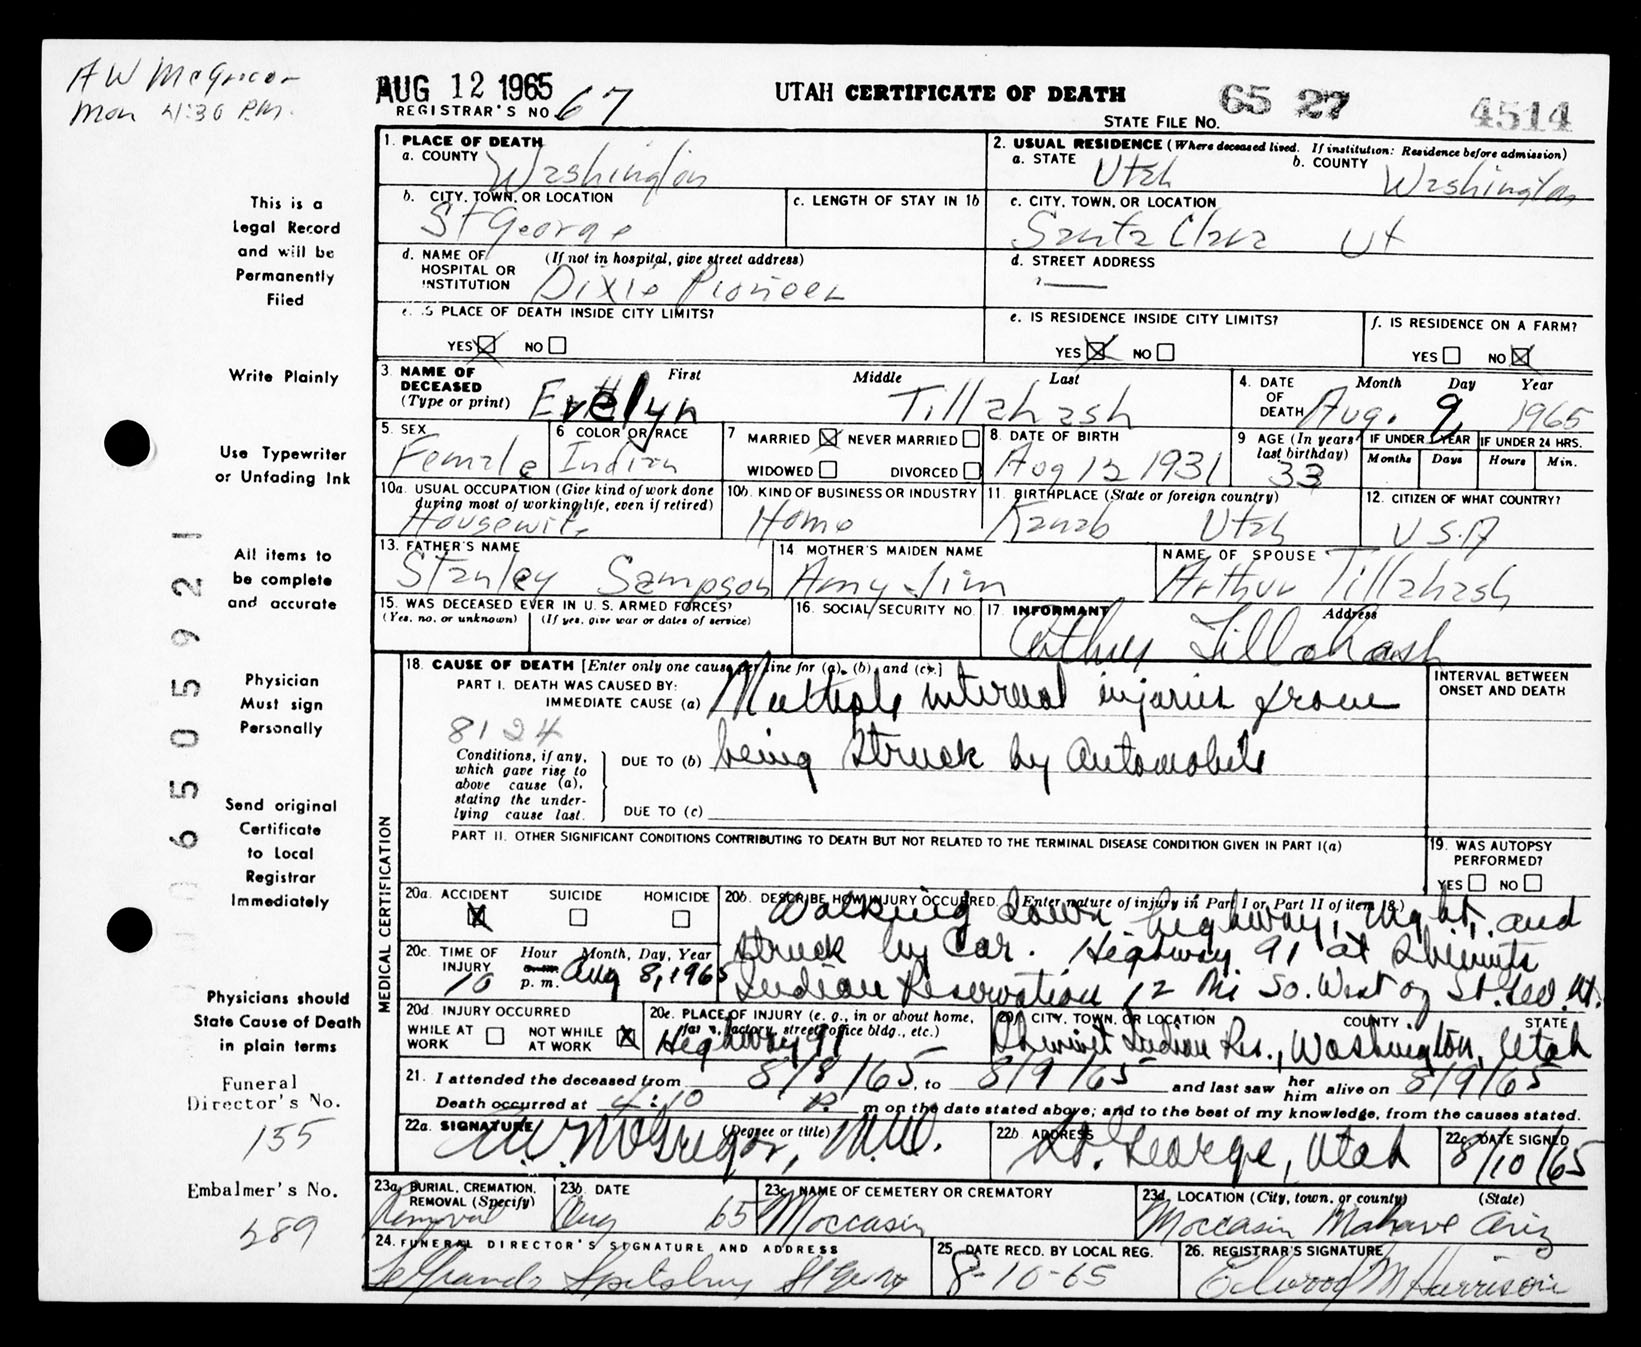 A W McGregor
Mon 4:30 P.M.
AUG 12 1965
REGISTRAR'S NO. 67
UTAH CERTIFICATE OF DEATH
STATE FILE NO. 65 27 4514
This is a
Legal Record
and will be
Permanently
Filed
Write Plainly
Use Typewriter
or Unfading Ink
All items to
be complete
and accurate
Physician
Must sign
Personally
Send original
Certificate
to Local
Registrar
Immediately
Physicians should
State Cause of Death
in plain terms
Funeral
Director's No.
155
Embalmer's No.
289
06505921
1. PLACE OF DEATH
a. COUNTY Washington
2. USUAL RESIDENCE (Where deceased lived. If institution: Residence before admission)
a. STATE Utah b. COUNTY Washington
b. CITY, TOWN, OR LOCATION St George
c. LENGTH OF STAY IN 1b
c. CITY, TOWN, OR LOCATION Santa Clara Ut
d. NAME OF HOSPITAL OR INSTITUTION (If not in hospital, give street address) Dixie Pioneer
d. STREET ADDRESS —
e. IS PLACE OF DEATH INSIDE CITY LIMITS?
YES NO
e. IS RESIDENCE INSIDE CITY LIMITS?
YES NO
f. IS RESIDENCE ON A FARM?
YES NO
3. NAME OF DECEASED (Type or print) First Middle Last
Evelyn Tillahash
4. DATE OF DEATH Month Day Year
Aug. 9 1965
5. SEX Female
6 COLOR OR RACE Indian
7 MARRIED NEVER MARRIED
WIDOWED DIVORCED
8. DATE OF BIRTH Aug 12 1931
9 AGE (In years last birthday) 33
IF UNDER 1 YEAR Months Days
IF UNDER 24 HRS. Hours Min.
10a. USUAL OCCUPATION (Give kind of work done during most of working life, even if retired) Housewife
10b. KIND OF BUSINESS OR INDUSTRY Home
11. BIRTHPLACE (State or foreign country) Kanab Utah
12. CITIZEN OF WHAT COUNTRY? U.S.A
13. FATHER'S NAME Stanley Sampson
14 MOTHER'S MAIDEN NAME Amy Jim
NAME OF SPOUSE Arthur Tillahash
15. WAS DECEASED EVER IN U.S. ARMED FORCES?
(Yes, no, or unknown) (If yes, give war or dates of service)
16. SOCIAL SECURITY NO.
17. INFORMANT Address
Arthur Tillahash
MEDICAL CERTIFICATION
18. CAUSE OF DEATH [Enter only one cause per line for (a), (b), and (c).]
PART I. DEATH WAS CAUSED BY:
IMMEDIATE CAUSE (a) Multiple internal injuries from
8124
Conditions, if any, which gave rise to above cause (a), stating the underlying cause last.
DUE TO (b) being struck by automobile
DUE TO (c)
INTERVAL BETWEEN ONSET AND DEATH
PART II. OTHER SIGNIFICANT CONDITIONS CONTRIBUTING TO DEATH BUT NOT RELATED TO THE TERMINAL DISEASE CONDITION GIVEN IN PART I(a)
19. WAS AUTOPSY PERFORMED?
YES NO
20a. ACCIDENT SUICIDE HOMICIDE
20b. DESCRIBE HOW INJURY OCCURRED. (Enter nature of injury in Part I or Part II of item 18.)
Walking down highway, night, and
struck by car. Highway 91 at Shivwits
Indian Reservation 12 Mi So. West of St. Geo. Ut.
20c. TIME OF INJURY Hour Month, Day, Year
10 a.m. p.m. Aug 8, 1965
20d. INJURY OCCURRED
WHILE AT WORK NOT WHILE AT WORK
20e. PLACE OF INJURY (e. g., in or about home, farm, factory, street, office bldg., etc.)
Highway 91
20f. CITY, TOWN, OR LOCATION COUNTY STATE
Shivwit Indian Res., Washington, Utah
21. I attended the deceased from 8/8/65, to 8/9/65 and last saw her him alive on 8/9/65
Death occurred at 4:10 P. m on the date stated above; and to the best of my knowledge, from the causes stated.
22a. SIGNATURE (Degree or title)
A.W. McGregor, M.D.
22b. ADDRESS St. George, Utah
22c. DATE SIGNED 8/10/65
23a. BURIAL, CREMATION, REMOVAL (Specify) Removal
23b DATE Aug 65
23c. NAME OF CEMETERY OR CREMATORY Moccasin
23d. LOCATION (City, town, or county) (State)
Moccasin Mohave Ariz
24. FUNERAL DIRECTOR'S SIGNATURE AND ADDRESS
LeGrande Spilsbury St George
25. DATE RECD. BY LOCAL REG.
8-10-65
26. REGISTRAR'S SIGNATURE
Elwood M Harrison